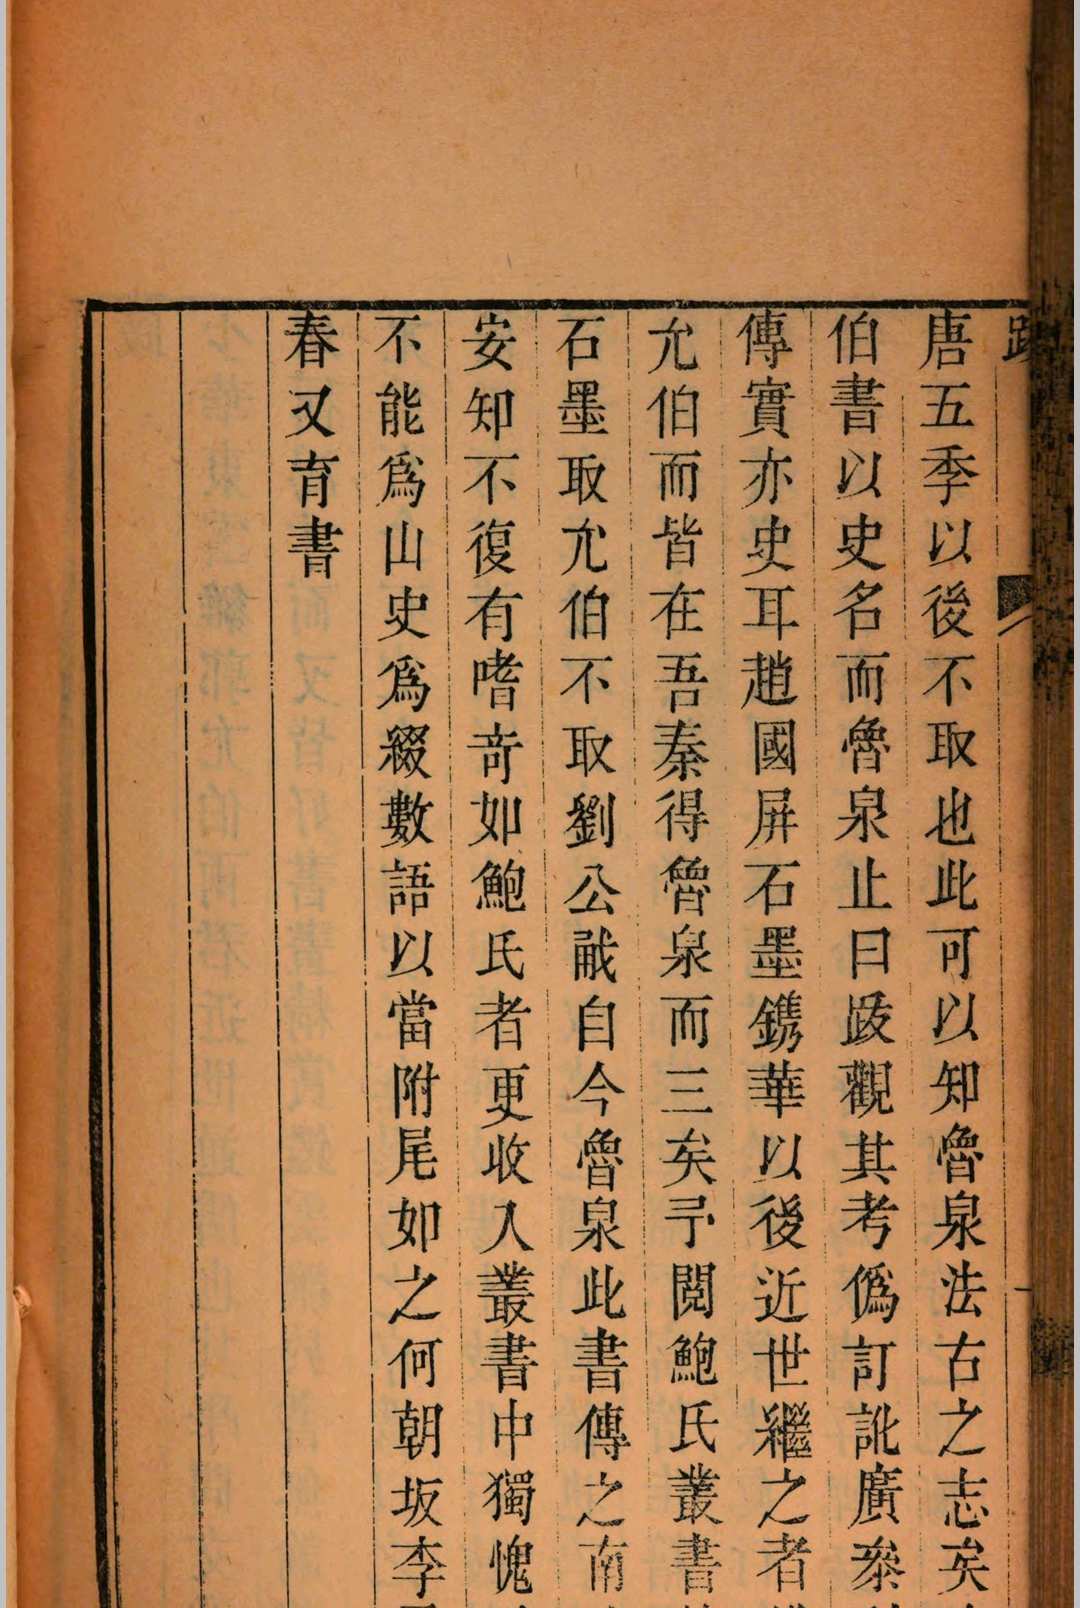 唐五季以後不取也此可以知魯泉法古之志矣
伯書以史名而魯泉止曰跋觀其考僞訂訛廣叅
傳實亦史耳趙國屏石墨鐫華以後近世繼之者
允伯而皆在吾秦得魯泉而三矣予閱鮑氏叢書
石墨取允伯不取劉公㦸自今魯泉此書傳之南
安知不復有嗜奇如鮑氏者更收入叢書中獨愧
不能爲山史爲綴數語以當附尾如之何朝坂李
春又育書